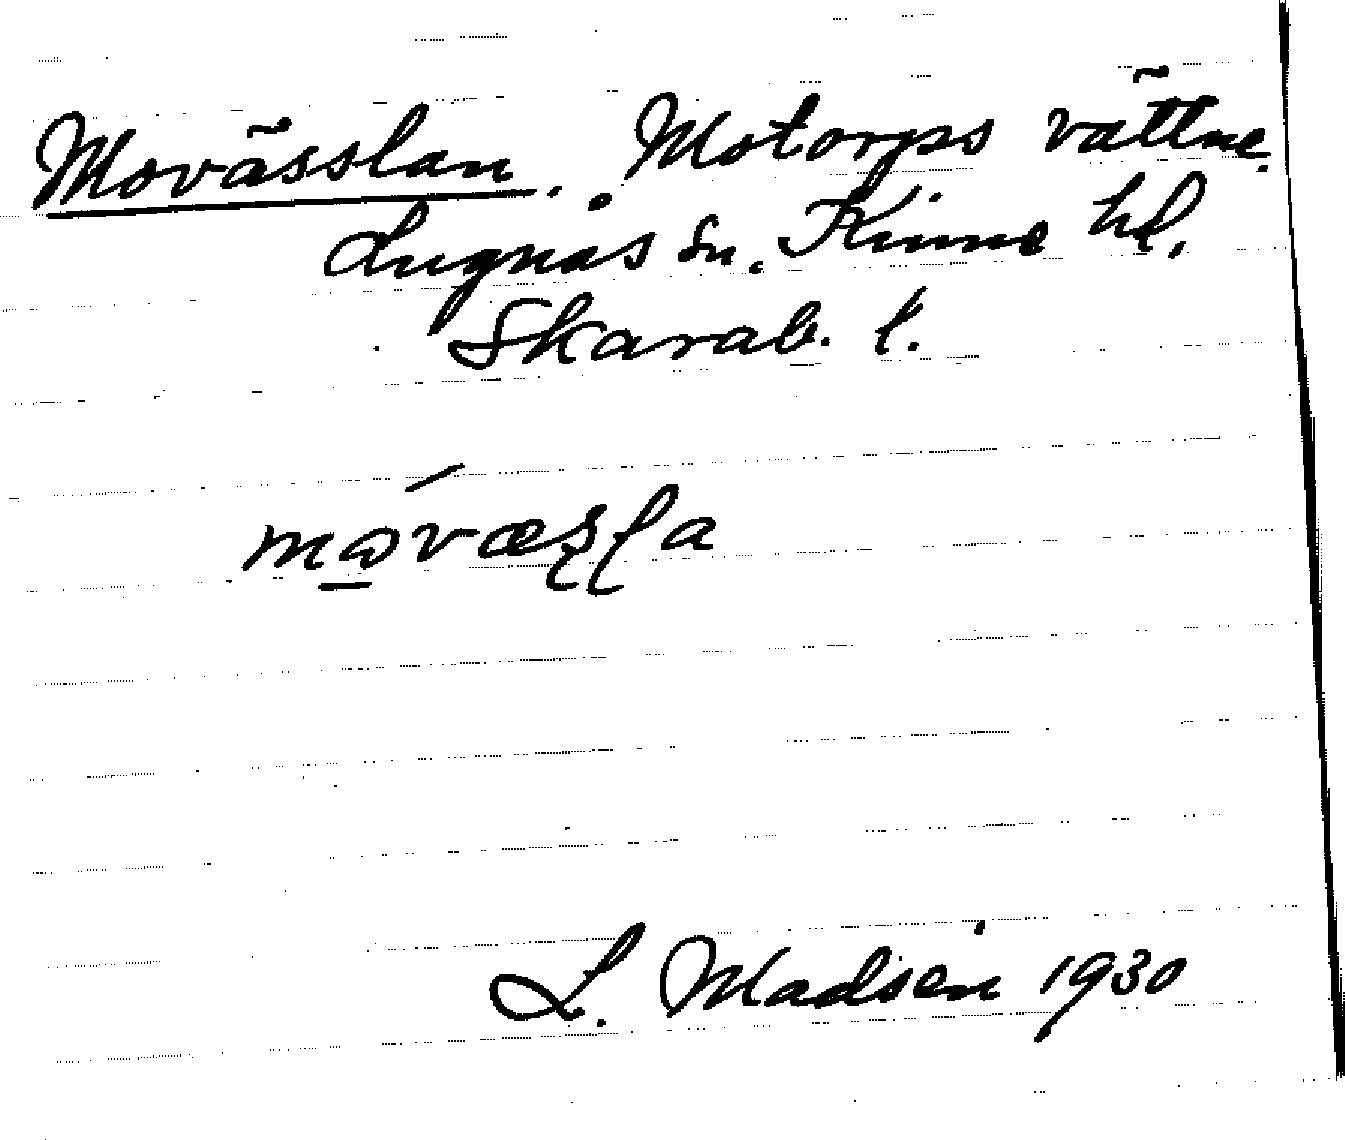 Movässlan. Motorps vättne.
Lugnås sn. Kinne hd.
Skarab. l.
L. Madsen 1930